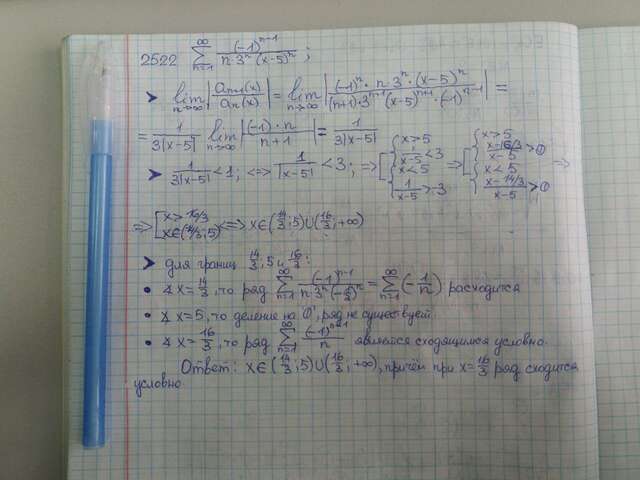 2522 ∑_{n=1}^{∞} (-1)^{n-1} / (n·3^n (x-5)^n) ;
➤ lim_{n→∞} |a_{n+1}(x) / a_n(x)| = lim_{n→∞} |(-1)^n · n · 3^n · (x-5)^n / ((n+1)·3^{n+1} (x-5)^{n+1} · (-1)^{n-1})| =
= 1/(3|x-5|) lim_{n→∞} |(-1)·n / (n+1)| = 1/(3|x-5|)
➤ 1/(3|x-5|) < 1; <=> 1/|x-5| < 3; => [ { x>5, 1/(x-5) < 3 ; { x<5, 1/(x-5) > -3 => [ { x>5, (x-16/3)/(x-5) > 0 ; { x<5, (x-14/3)/(x-5) > 0 =>
=> [ x > 16/3 ; x∈(14/3; 5) <=> x∈(14/3; 5)∪(16/3; +∞)
➤ для границ 14/3, 5 и 16/3:
• ∢ x = 14/3, то ряд ∑_{n=1}^{∞} (-1)^{n-1} / (n·3^n (-1/3)^n) = ∑_{n=1}^{∞} (-1/n) расходится
• ∢ x = 5, то деление на 0, ряд не существует.
• ∢ x = 16/3, то ряд ∑_{n=1}^{∞} (-1)^{n-1} / n является сходящимся условно.
Ответ: x∈(14/3; 5)∪(16/3; +∞), причём при x = 16/3 ряд сходится
условно.